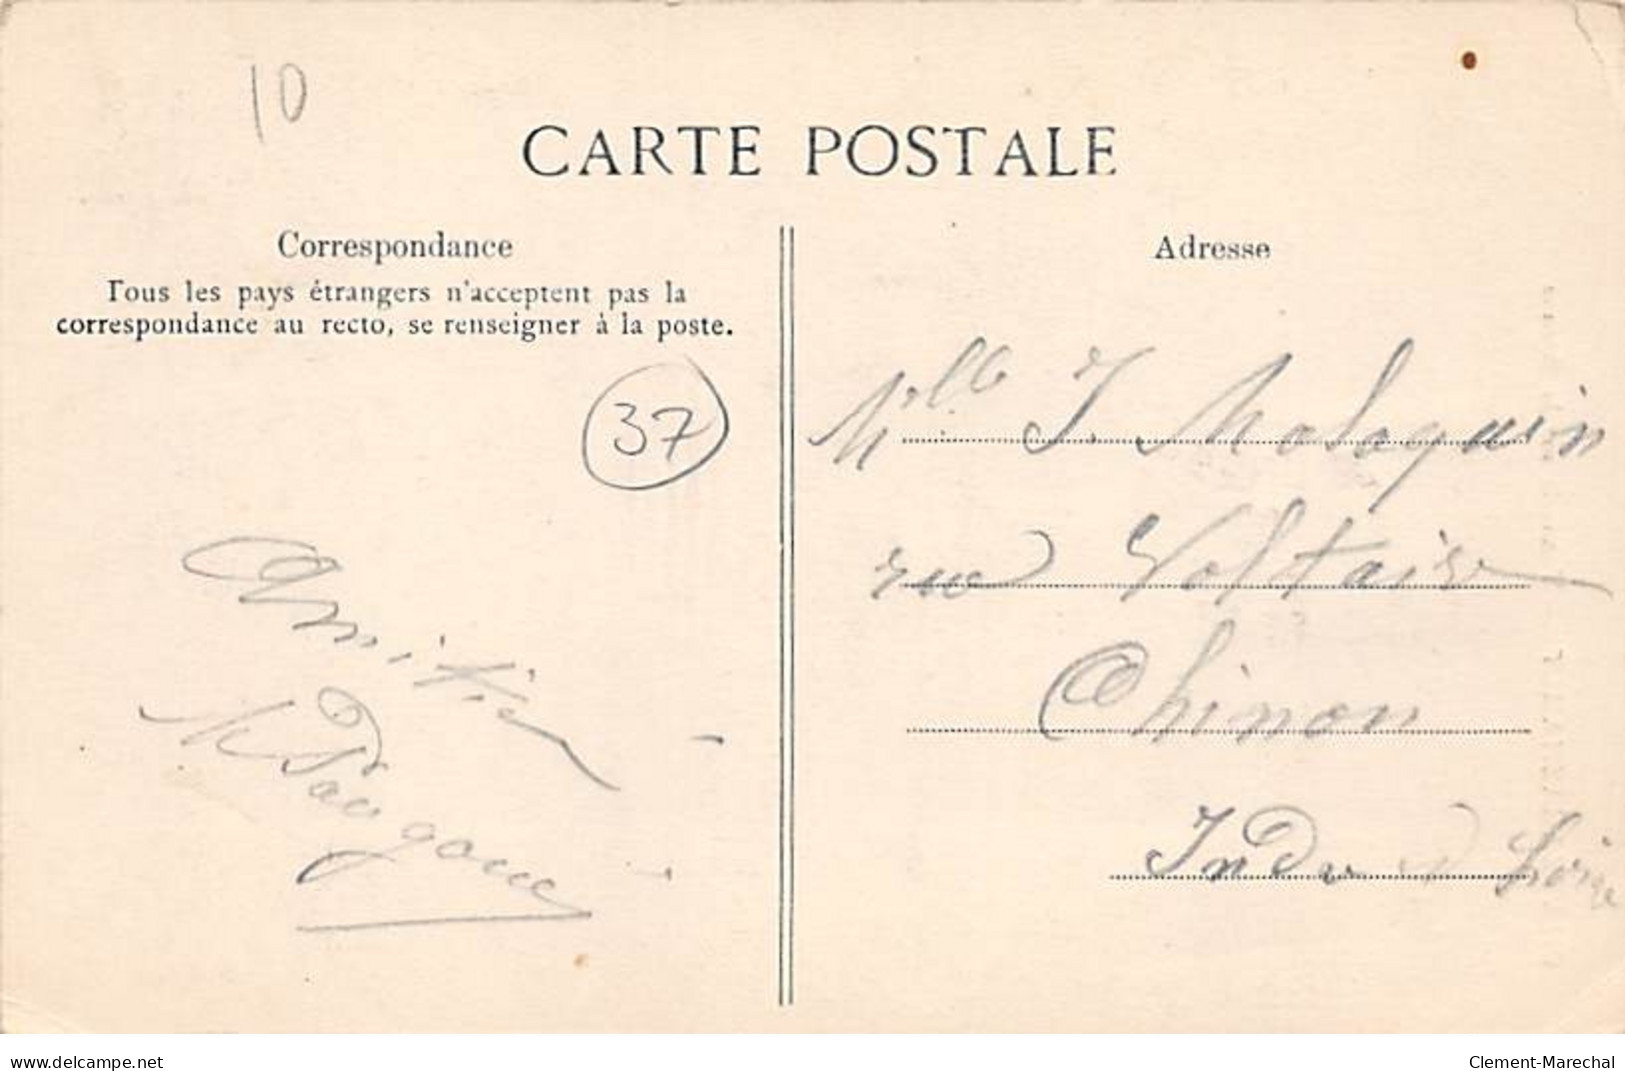 10
CARTE POSTALE
Correspondance
Tous les pays étrangers n'acceptent pas la
correspondance au recto, se renseigner à la poste.
37
Amitié
Adresse
Mlle J. Malaquin
rue Voltaire
Chinon
Indre & Loire
delcampe.net
Clement-Marechal